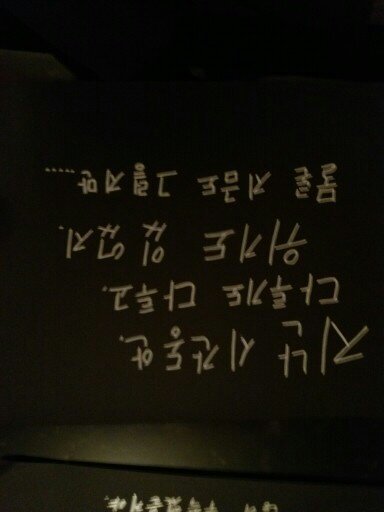 지난 시간동안.
다투기도 다투고.
위기도 있었지.
물론 지금도 그렇지만.....